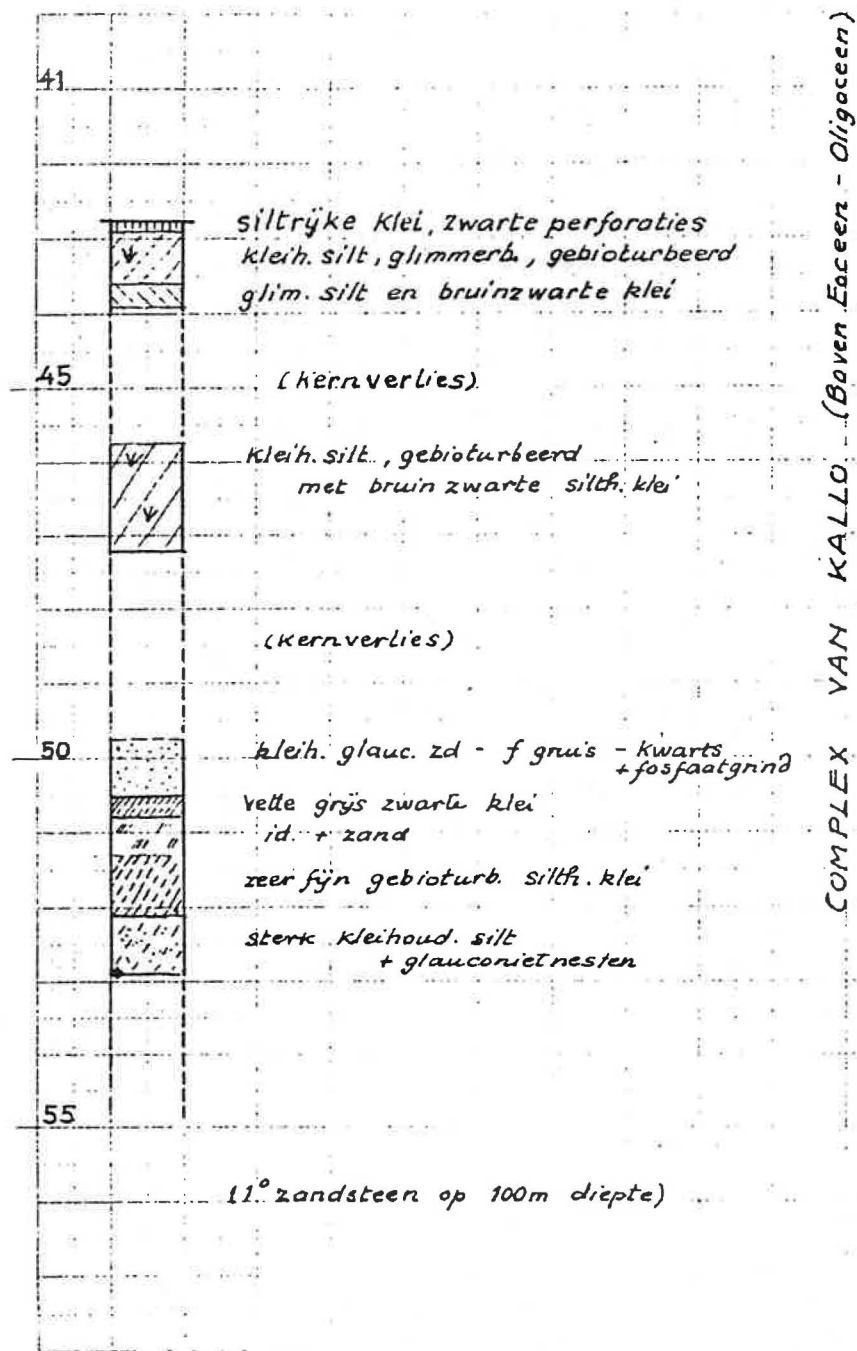 41
siltrijke klei, zwarte perforaties
kleih. silt, glimmerh., gebioturbeerd
glim. silt en bruinzwarte klei
45
(kernverlies)
kleih. silt, gebioturbeerd
met bruin zwarte silth. klei
(kernverlies)
50
kleih. glauc. zd - f gruis - kwarts
+ fosfaatgrind
vette grijs zwarte klei
id. + zand
zeer fijn gebioturb. silth. klei
sterk kleihoud. silt
+ glauconietnesten
55
(1° zandsteen op 100m diepte)
COMPLEX VAN KALLO (Boven Eoceen - Oligoceen)